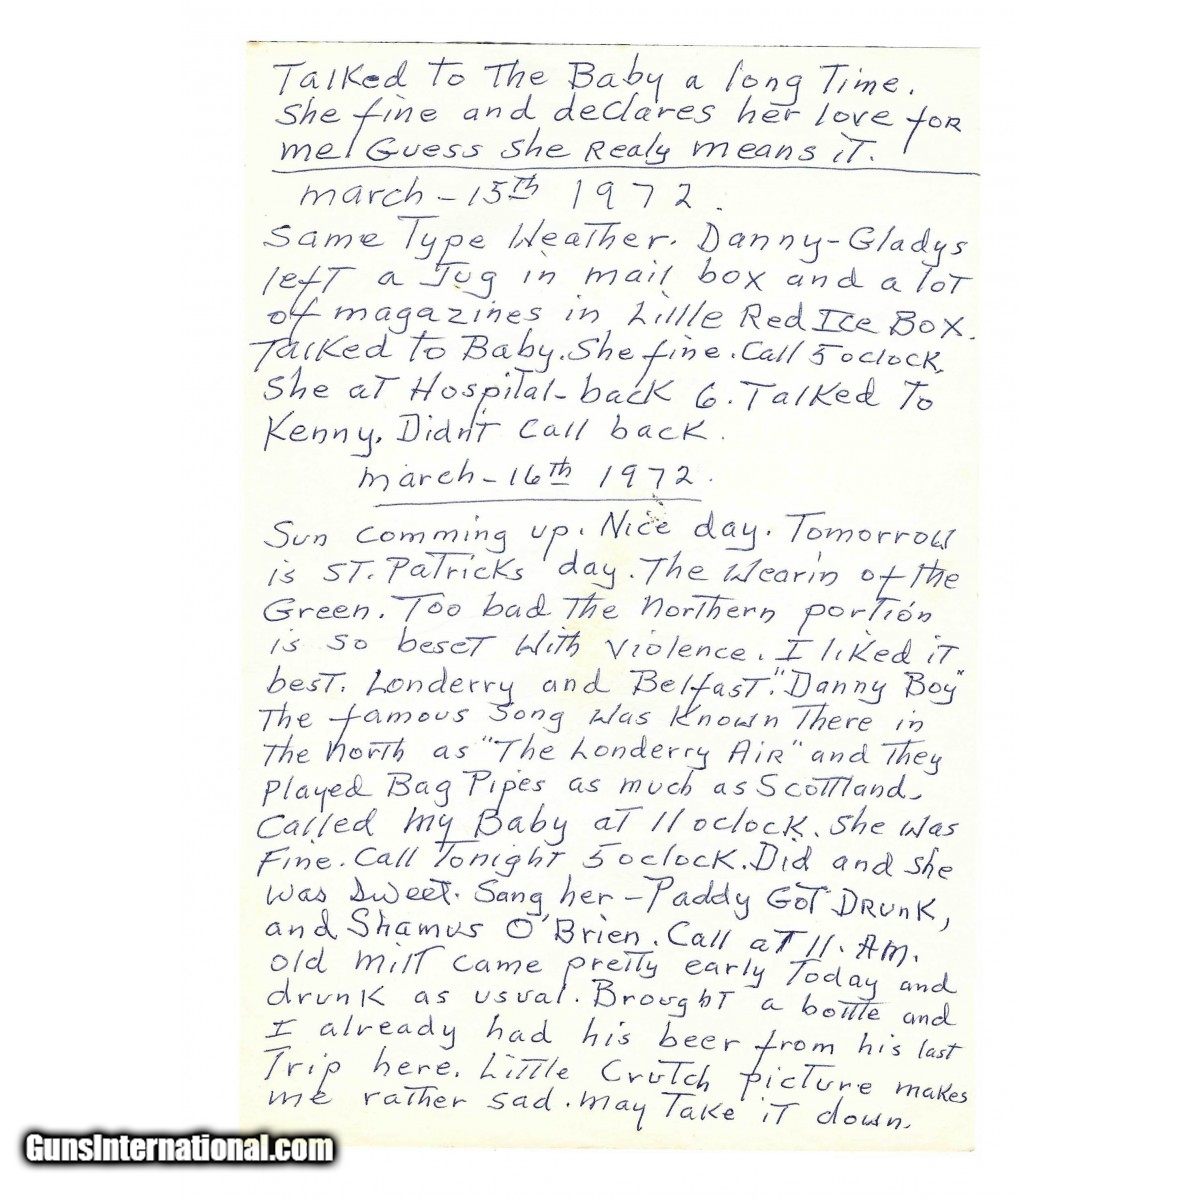 Talked to The Baby a long Time.
She fine and declares her love for
me! Guess She Realy means it.
march - 15th 1972.
Same Type Weather. Danny-Gladys
left a Jug in mail box and a lot
of magazines in Little Red Ice Box.
Talked to Baby. She fine. Call 5 oclock,
She at Hospital - back 6. Talked To
Kenny. Didn't Call back.
march - 16th 1972.
Sun Comming up. Nice day. Tomorrow
is ST. Patricks day. The Wearin of the
Green. Too bad The Northern portion
is so beset With Violence. I liked it
best. Londerry and Belfast. "Danny Boy"
The famous Song Was Known There in
The North as "The Londerry AiR" and They
Played Bag Pipes as much as Scottland.
Called My Baby at 11 oclock. She Was
Fine. Call Tonight 5 oclock. Did and she
was Sweet. Sang her - Paddy Got Drunk,
and Shamus O'Brien. Call at 11. AM.
old Milt came pretty early Today and
drunk as usual. Brought a bottle and
I already had his beer from his last
Trip here. Little Crutch picture makes
me rather sad. May Take it down.
GunsInternational.com